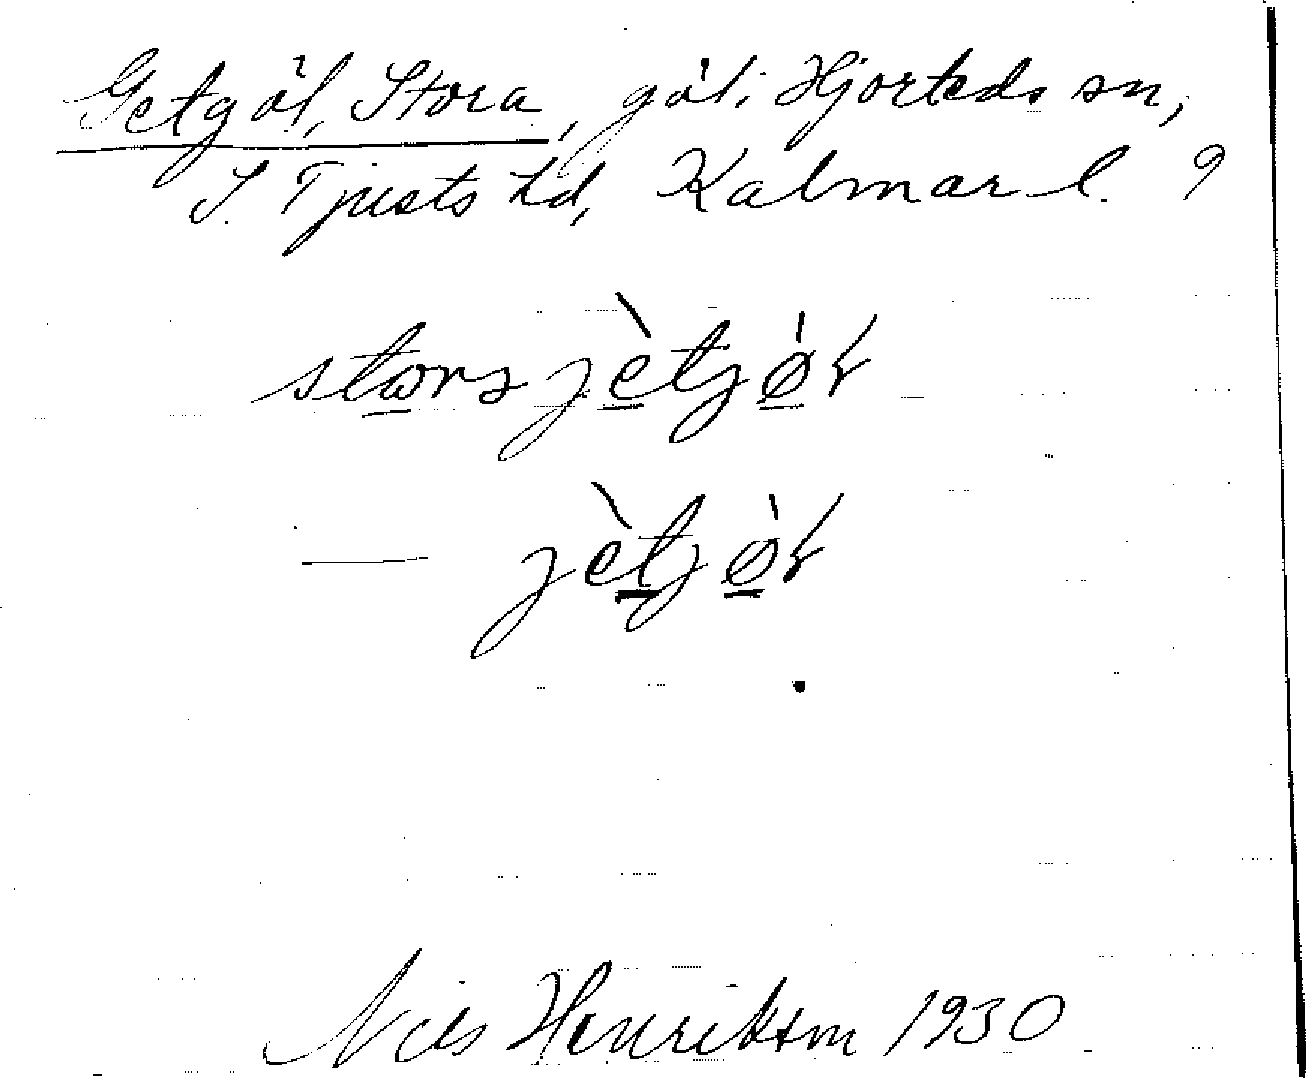 Getgöl, Stora, göl i Hjorteds sn,
S. Tjusts hd, Kalmar l. 9
jètjø̀ɫ
Nils Henriksson 1930